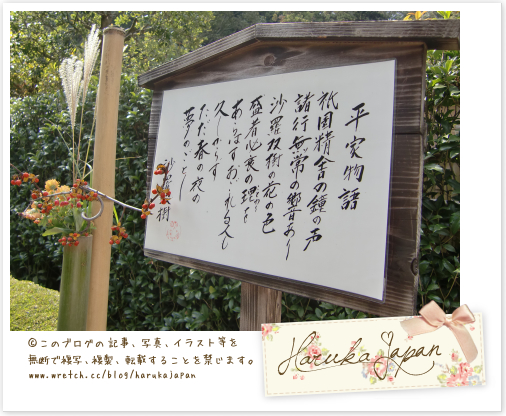 平家物語
祇園精舎の鐘の声
諸行無常の響あり
沙羅双樹の花の色
盛者必衰の理を
あらはすおごれる人も
久しからず
ただ春の夜の
夢のごとし
©このブログの記事、写真、イラスト等を
無断で複写、複製、転載することを禁じます。
www.wretch.cc/blog/harukajapan
Haruka Japan